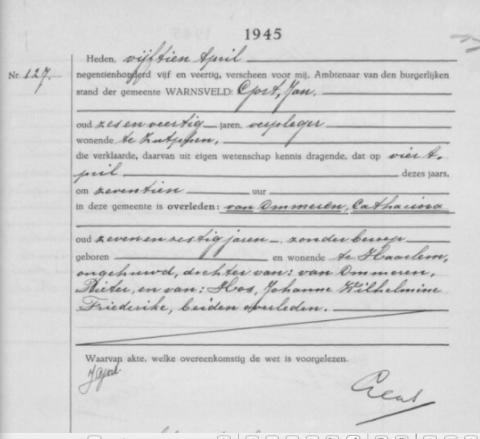 1945
Nr. 127.
Heden, vijftien April
negentienhonderd vijf en veertig, verscheen voor mij, Ambtenaar van den burgerlijken
stand der gemeente WARNSVELD: Jan.
oud zes en veertig jaren, verpleger
wonende te Zutphen,
die verklaarde, daarvan uit eigen wetenschap kennis dragende, dat op vier A-
pril dezes jaars,
om zeventien uur
in deze gemeente is overleden: van Ommeren, Catharina
oud zeven en zestig jaren, zonder beroep
geboren en wonende te Haarlem,
ongehuwd, dochter van: van Ommeren,
Pieter, en van: Hos, Johanne Wilhelmine
Friederike, beiden overleden.
Waarvan akte, welke overeenkomstig de wet is voorgelezen.